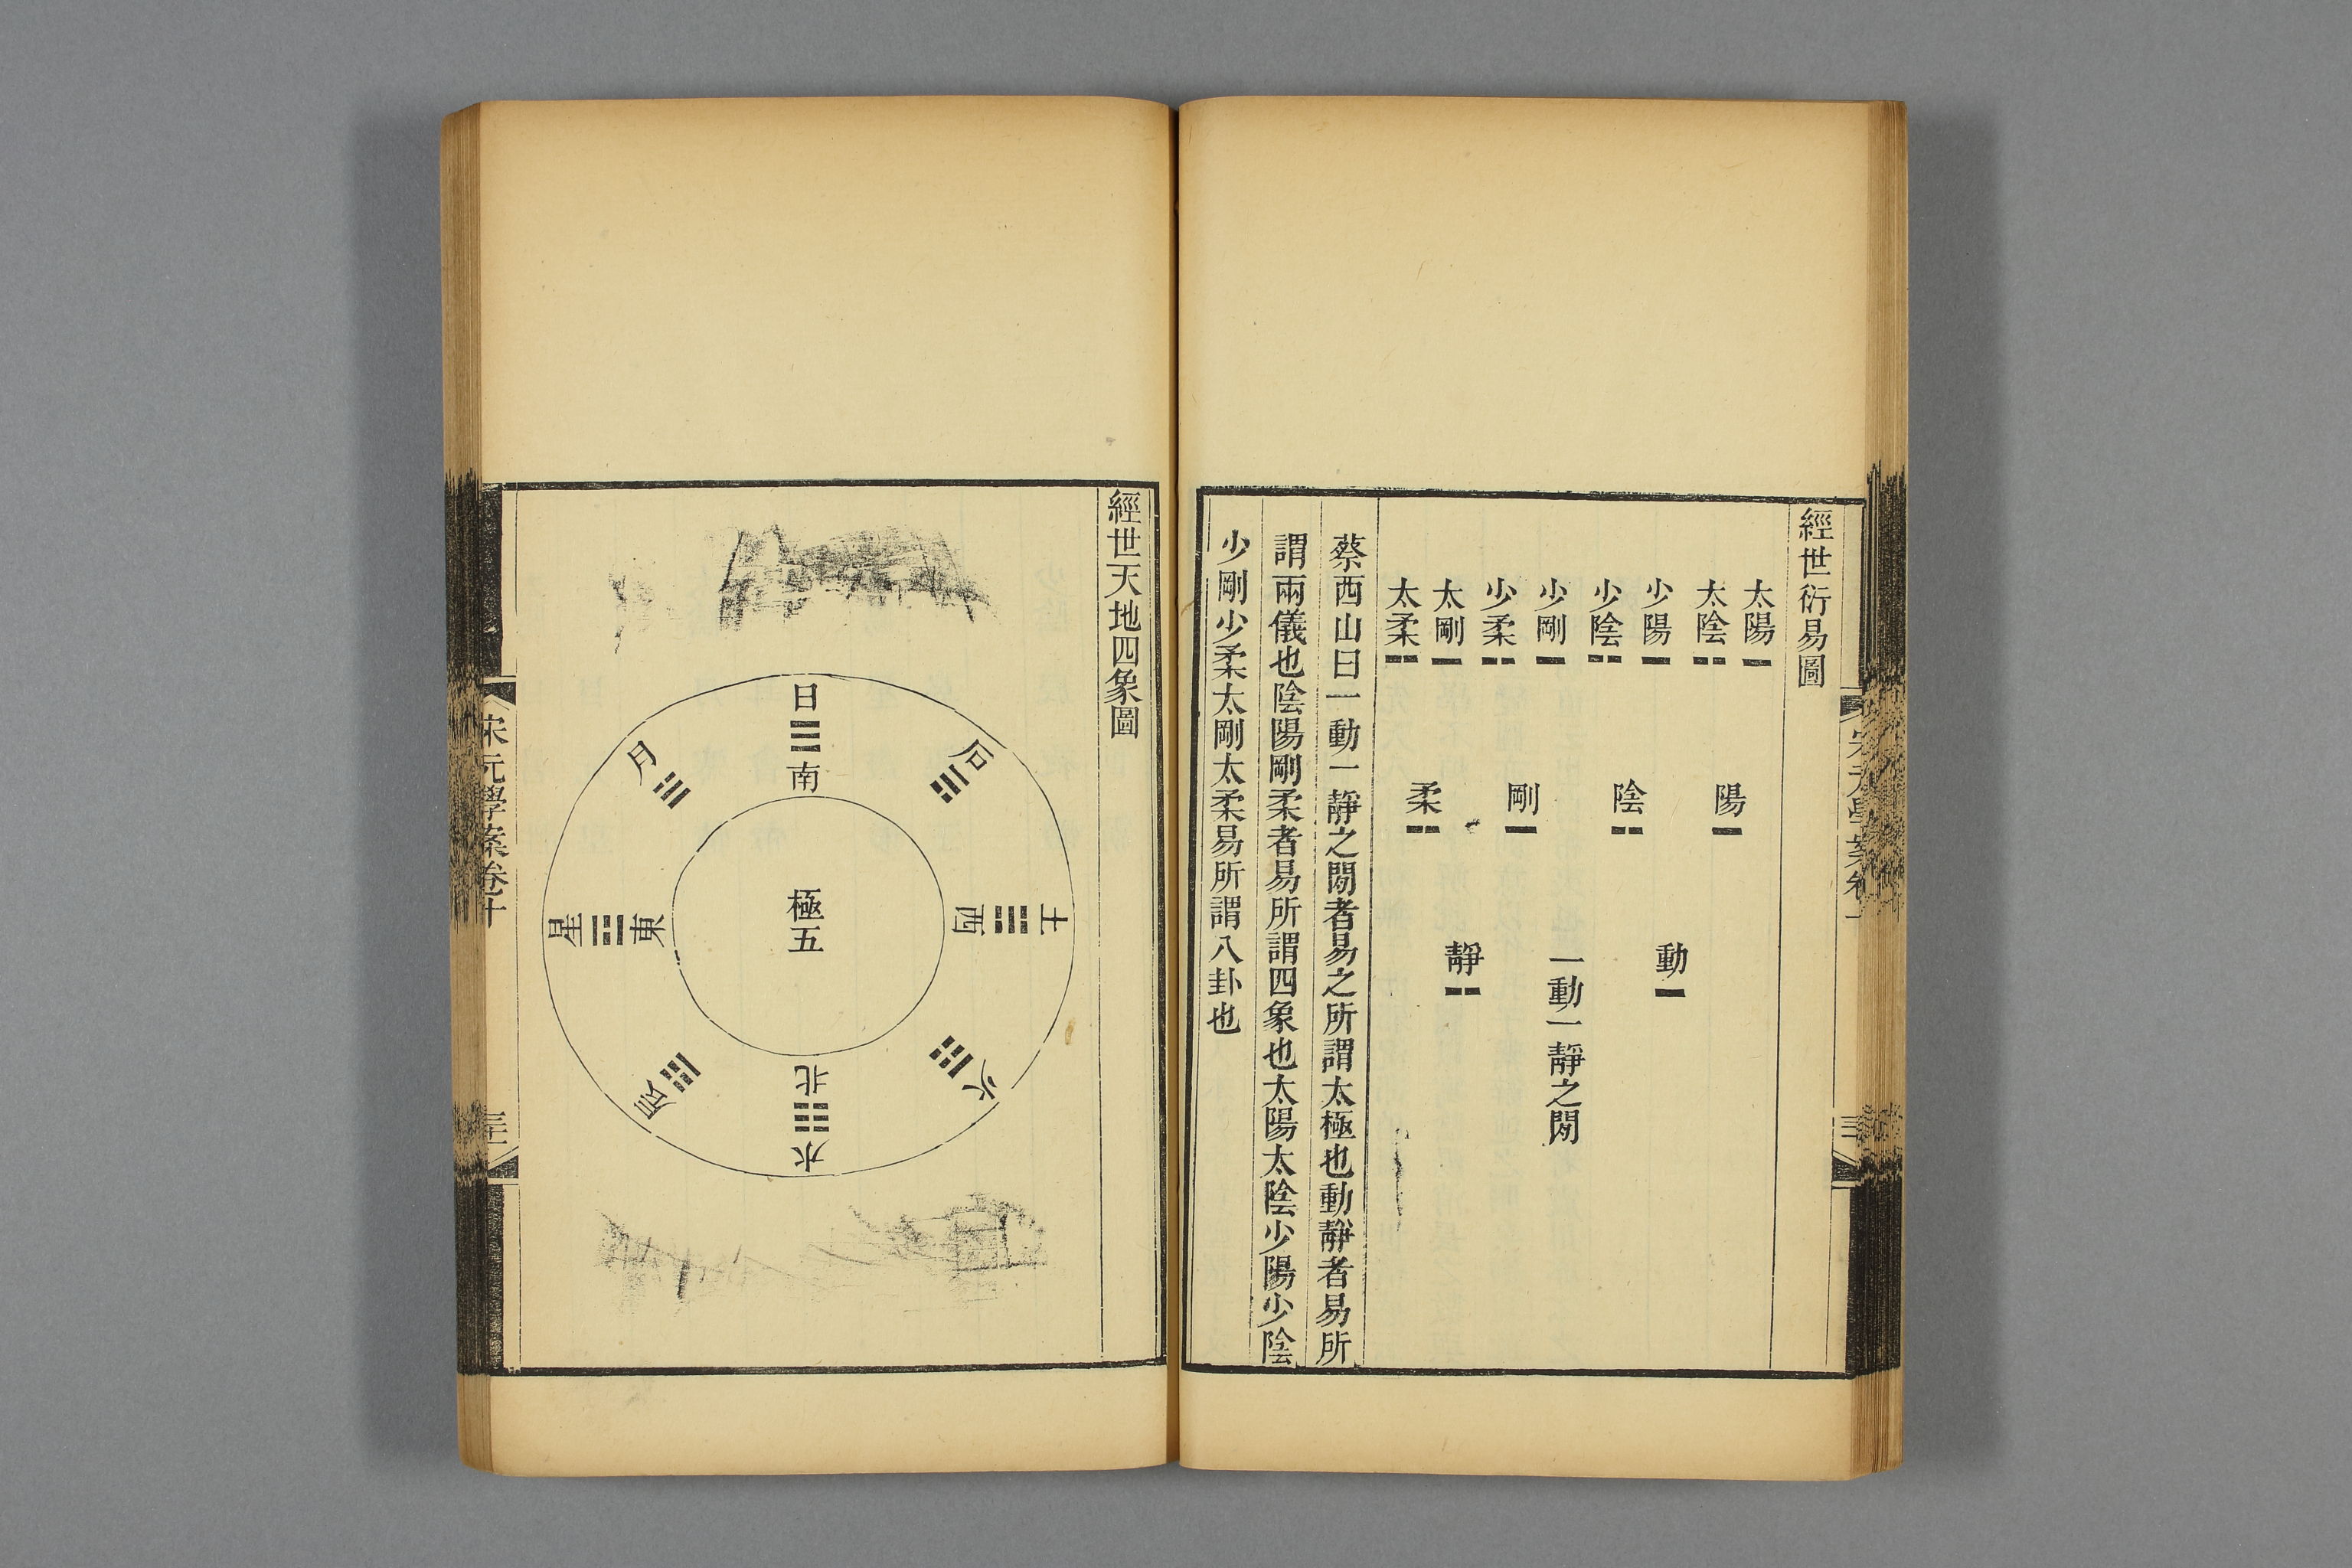 經世衍易圖
太陽 太陰 少陽 少陰 少剛 少柔 太剛 太柔
陽 陰 剛 柔
動 靜
一動一靜之閒
蔡西山曰一動一靜之閒者易之所謂太極也動靜者易所
謂兩儀也陰陽剛柔者易所謂四象也太陽太陰少陽少陰
少剛少柔太剛太柔易所謂八卦也
經世天地四象圖
日 ☰ 南
月 ☱
星 ☲ 東
辰 ☳
石 ☴
土 ☵ 西
火 ☶
水 ☷ 北
極五
宋元學案卷十